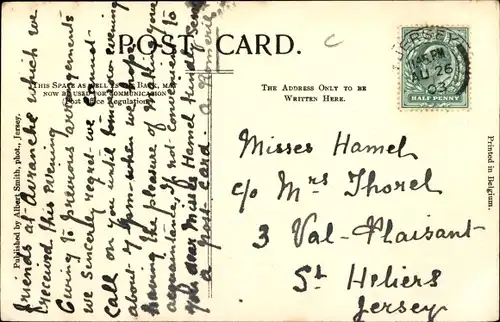 POST CARD.
THIS SPACE AS WELL AS THE BACK, MAY
NOW BE USED FOR COMMUNICATION
(Post Office Regulation).
THE ADDRESS ONLY TO BE
WRITTEN HERE.
JERSEY
11.45 PM
AU 26
HALF PENNY
Misses Hamel
c/o Mrs Thorel
3 Val-Plaisant
St Heliers
Jersey
Printed in Belgium.
Published by Albert Smith, phot., Jersey.
friends at Avranche which we
received this evening
Owing to previous arrangements
we sincerely regret we cannot
call on you until tomorrow evening
about 7 pm - when we hope
having the pleasure of making your
acquaintance. If not convenient to
you dear Misses Hamel kindly send
a post card.